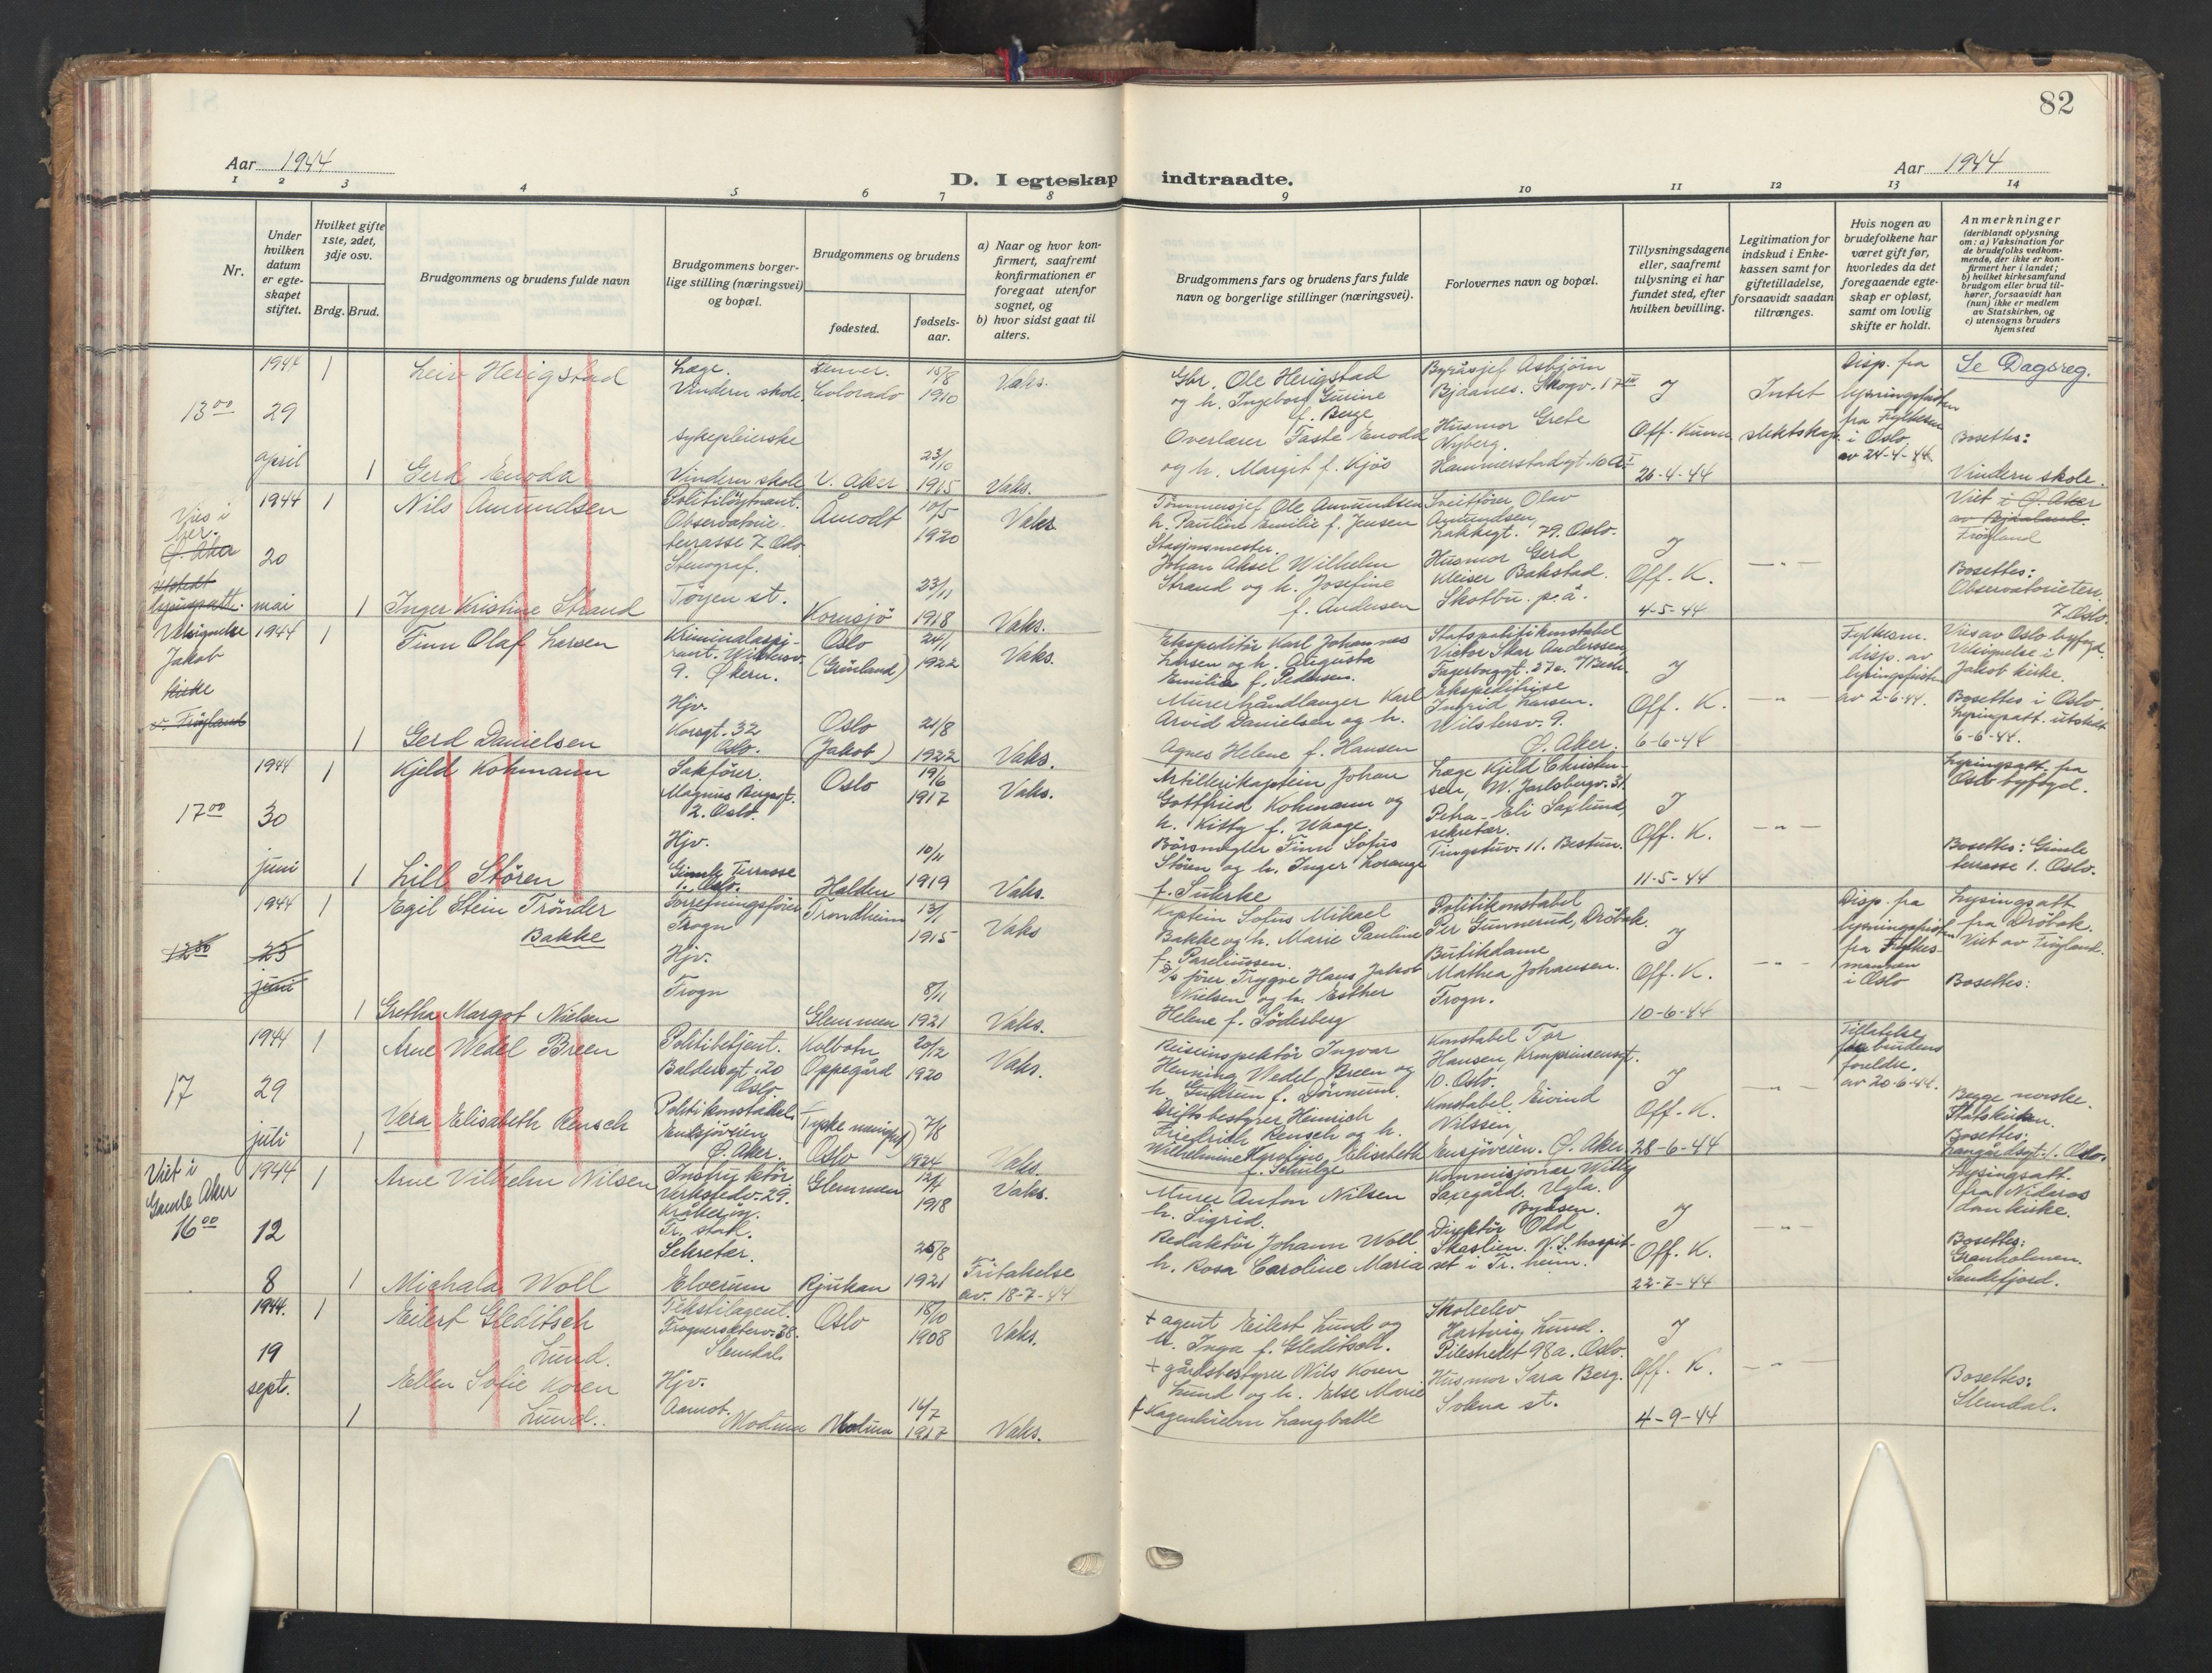 82
Aar 1944
D. I egteskap indtraadte.
Aar 1944
1 2 3 4 5 6 7 8 9 10 11 12 13 14
Nr.
Under hvilken datum er egte-skapet stiftet.
Hvilket gifte 1ste, 2det, 3dje osv.
Brdg. Brud.
Brudgommens og brudens fulde navn
Brudgommens borger-lige stilling (næringsvei) og bopæl.
Brudgommens og brudens
fødested.
fødsels-aar.
a) Naar og hvor kon-firmert, saafremt konfirmationen er foregaat utenfor sognet, og
b) hvor sidst gaat til alters.
Brudgommens fars og brudens fars fulde navn og borgerlige stillinger (næringsvei).
Forlovernes navn og bopæl.
Tillysningsdagene eller, saafremt tillysning ei har fundet sted, efter hvilken bevilling.
Legitimation for indskud i Enke-kassen samt for giftetilladelse, forsaavidt saadan tiltrænges.
Hvis nogen av brudefolkene har været gift før, hvorledes da det foregaaende egte-skap er opløst, samt om lovlig skifte er holdt.
Anmerkninger
(deriblandt oplysning om: a) Vaksination for de brudefolks vedkom-mende, der ikke er kon-firmert her i landet; b) hvilket kirkesamfund brudgom eller brud til-hører, forsaavidt han (hun) ikke er medlem av Statskirken, og c) utensogns bruders hjemsted
13 00
1944
29
april
1
Leiv Herigstad
Læge.
Vindern skole.
Denver.
Colorado
15/8
1910
Vaks.
1
Gerd Enoda
Sykepleierske
Vindern skole
V. Aker
23/10
1915
Vaks.
Gbr. Ole Herigstad
og h. Ingeborg Gurine
f. Berge
Overlærer Taste Enoda
og h. Margit f. Kjös
Byråsjef Asbjörn
Bjdanes. Skogv. 17 III
Husmor Grete
Nyberg.
Hammerstadgt. 10 A I
J
Off. Kunn
26-4-44
Intet
slektskap
Disp. fra
lysningsfristen
fra Fylkesm
i Oslo
av 24-4-44.
Se Dagsreg.
Bosettes:
Vindern skole.
Vies i
her.
Ø. Aker
utstedt
lysingsatt.
1944
20
mai
1
Nils Amundsen
Politilöytnant.
Observatorie-
terrasse 7 Oslo.
Åmodt
10/5
1920
Vaks
1
Inger Kristine Strand
Stenograf.
Töyen st.
Kornsjö
23/11
1918
Vaks.
Tömmersjef Ole Amundsen
h. Pauline Emilie f. Jensen
Stasjonsmester.
Johan Aksel Wilhelm
Strand og h. Josefine
f. Andersen
Sveitförer Olav
Amundsen,
Lakkegt. 79. Oslo.
Husmor Gerd
Meiser Bakstad.
Skotbu. p.å.
J
Off. K.
4-5-44
— „ —
Viet i Ø. Aker
av Bjåland.
Fröyland
Bosettes:
Observatorieter.
7. Oslo.
Velsignelse
Jakob
kirke
v. Fröyland
1944
1
Finn Olaf Larsen
Kriminalaspi-
rant. Wilstersv.
9. Økern.
Oslo
(Grönland)
24/1
1922
Vaks.
1
Gerd Danielsen
Hjv.
Korsgt. 32
Oslo.
Oslo
(Jakob)
21/8
1922
Vaks.
Ekspeditör Karl Johannes
Larsen og h. Augusta
Emilie f. Pedersen.
Murerhåndlanger Karl
Arvid Danielsen og h.
Agnes Helene f. Hansen
Statspolitikonstabel
Victor Skar Anderssen
Fagerborggt. 37c.
Ekspeditrise
Ingrid Larsen.
Wilstersv. 9.
Ø. Aker.
J
Off. K.
6-6-44
— „ —
Fylkesm.
disp. av
lysingsfristen
av 2-6-44.
Vies av Oslo byfogd.
Velsignelse i
Jakob kirke.
Bosettes i Oslo.
Lysingsatt. utstedt
6-6-44.
17 00
1944
30
juni
1
Kjeld Kohmann
Sakförer.
Magnus Bergsgt.
2. Oslo.
Oslo
19/6
1917
Vaks.
1
Lill Stören
Hjv.
Gimle Terrasse
1. Oslo.
Halden
10/11
1919
Vaks.
Artillerikaptein Johan
Gottfried Kohmann og
h. Kitty f. Waage
Börsmegler Finn Sofus
Stören og h. Inger Lorange
f. Suhrke
Læge Kjeld Christen-
sen, W. Jarlsbergv. 31.
Petra-Eli Saxlund,
sekretær.
Tingstuv. 11. Bestun.
J
Off. K.
11-5-44
— „ —
Lysingsatt. fra
Oslo byfogd.
Bosettes: Gimle
terrasse 1. Oslo.
12 30
1944
25
juni
1
Egil Stein Trönder
Bakke
Forretningsförer
Frogn
Trondheim
13/1
1915
Vaks
1
Gretha Margot Nielsen
Hjv.
Frogn
Glemmen
8/11
1921
Vaks.
Kaptein Sofus Mikael
Bakke og h. Marie Pauline
f. Pareliussen.
förer Trygve Hans Jakob
Nielsen og h. Esther
Helene f. Söderberg
Politikonstabel
Per Gunnerud, Dröbak.
Butikdame
Mathea Johansen.
Frogn.
J
Off. K.
10-6-44
— „ —
Disp. fra
lysningsfristen
fra Fylkes-
mannen
i Oslo
Lysingsatt
fra Dröbak.
Viet av Fröyland.
Bosettes:
17
1944
29
juli
1
Arne Wedel Breen
Politibetjent.
Baldersgt. 20
Oslo
Kolbotn
Oppegård
20/12
1920
Vaks.
1
Vera Elisabeth Rensch
Politikonstabel
Ensjöveien
Ø. Aker.
(Tyske menighet)
Oslo
7/8
1924
Vaks.
Reiseinspektör Ingvar
Henning Wedel Breen og
h. Gudrun f. Dörnum.
Driftsbestyrer Heinrich
Friedrich Rensch og h.
Wilhelmine Karoline Elisabeth
f. Schulze
Konstabel Tor
Hansen, Kronprinsensgt.
10. Oslo.
Konstabel Eivind
Nilssen,
Ensjöveien. Ø. Aker
J
Off. K.
28-6-44
— „ —
Tillatelse
fra brudens
foreldre.
av 20-6-44.
Begge norske.
Statskirken.
Bosettes:
Langårdsgt. 1. Oslo.
Viet i
Gamle Aker
16 00
1944
12
8
1
Arne Vilhelm Nilsen
Instruktör
Verkstedv. 29.
Kråkeröy.
Fr. stad.
Glemmen
12/4
1918
Vaks.
1
Michala Woll
Sekretær.
Elverum
Rjukan
25/8
1921
Fritakelse
av. 18-7-44
Murer Anton Nilsen
h. Sigrid.
Redaktör Johann Woll
h. Rosa Caroline Maria
Kommisjonær Willy
Saxegård. Ugla.
Byåsen.
Direktör Odd
Skaslien. N.S. hospit-
set i Tr.heim.
J
Off. K.
22-7-44
— „ —
Lysingsatt.
fra Nidaros
domkirke.
Bosettes:
Granholmen.
Sandefjord.
1944.
19
sept.
1
Eilert Gleditsch
Lund.
Tekstilagent.
Frognersæterv. 38.
Slemdal.
Oslo
18/10
1908
Vaks.
1
Ellen Sofie Koren
Lund.
Hjv.
Aamot.
Modum
Modum
16/7
1917
Vaks.
+ agent Eilert Lund og
h. Inga f. Gleditsch.
+ gårdsbestyrer Nils Koren
Lund og h. Else Marie
f. Kagenhielm Langballe
Skoleelev
Hartvig Lund.
Pilestredet 98a. Oslo.
Husmor Sara Berg.
Sokna st.
J
Off. K.
4-9-44
— „ —
Bosettes:
Slemdal.